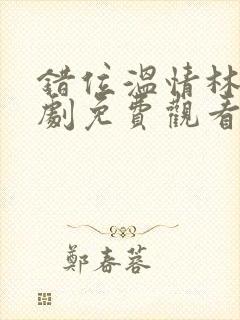 錯位溫情林
劇免費觀看
鄭春蓉